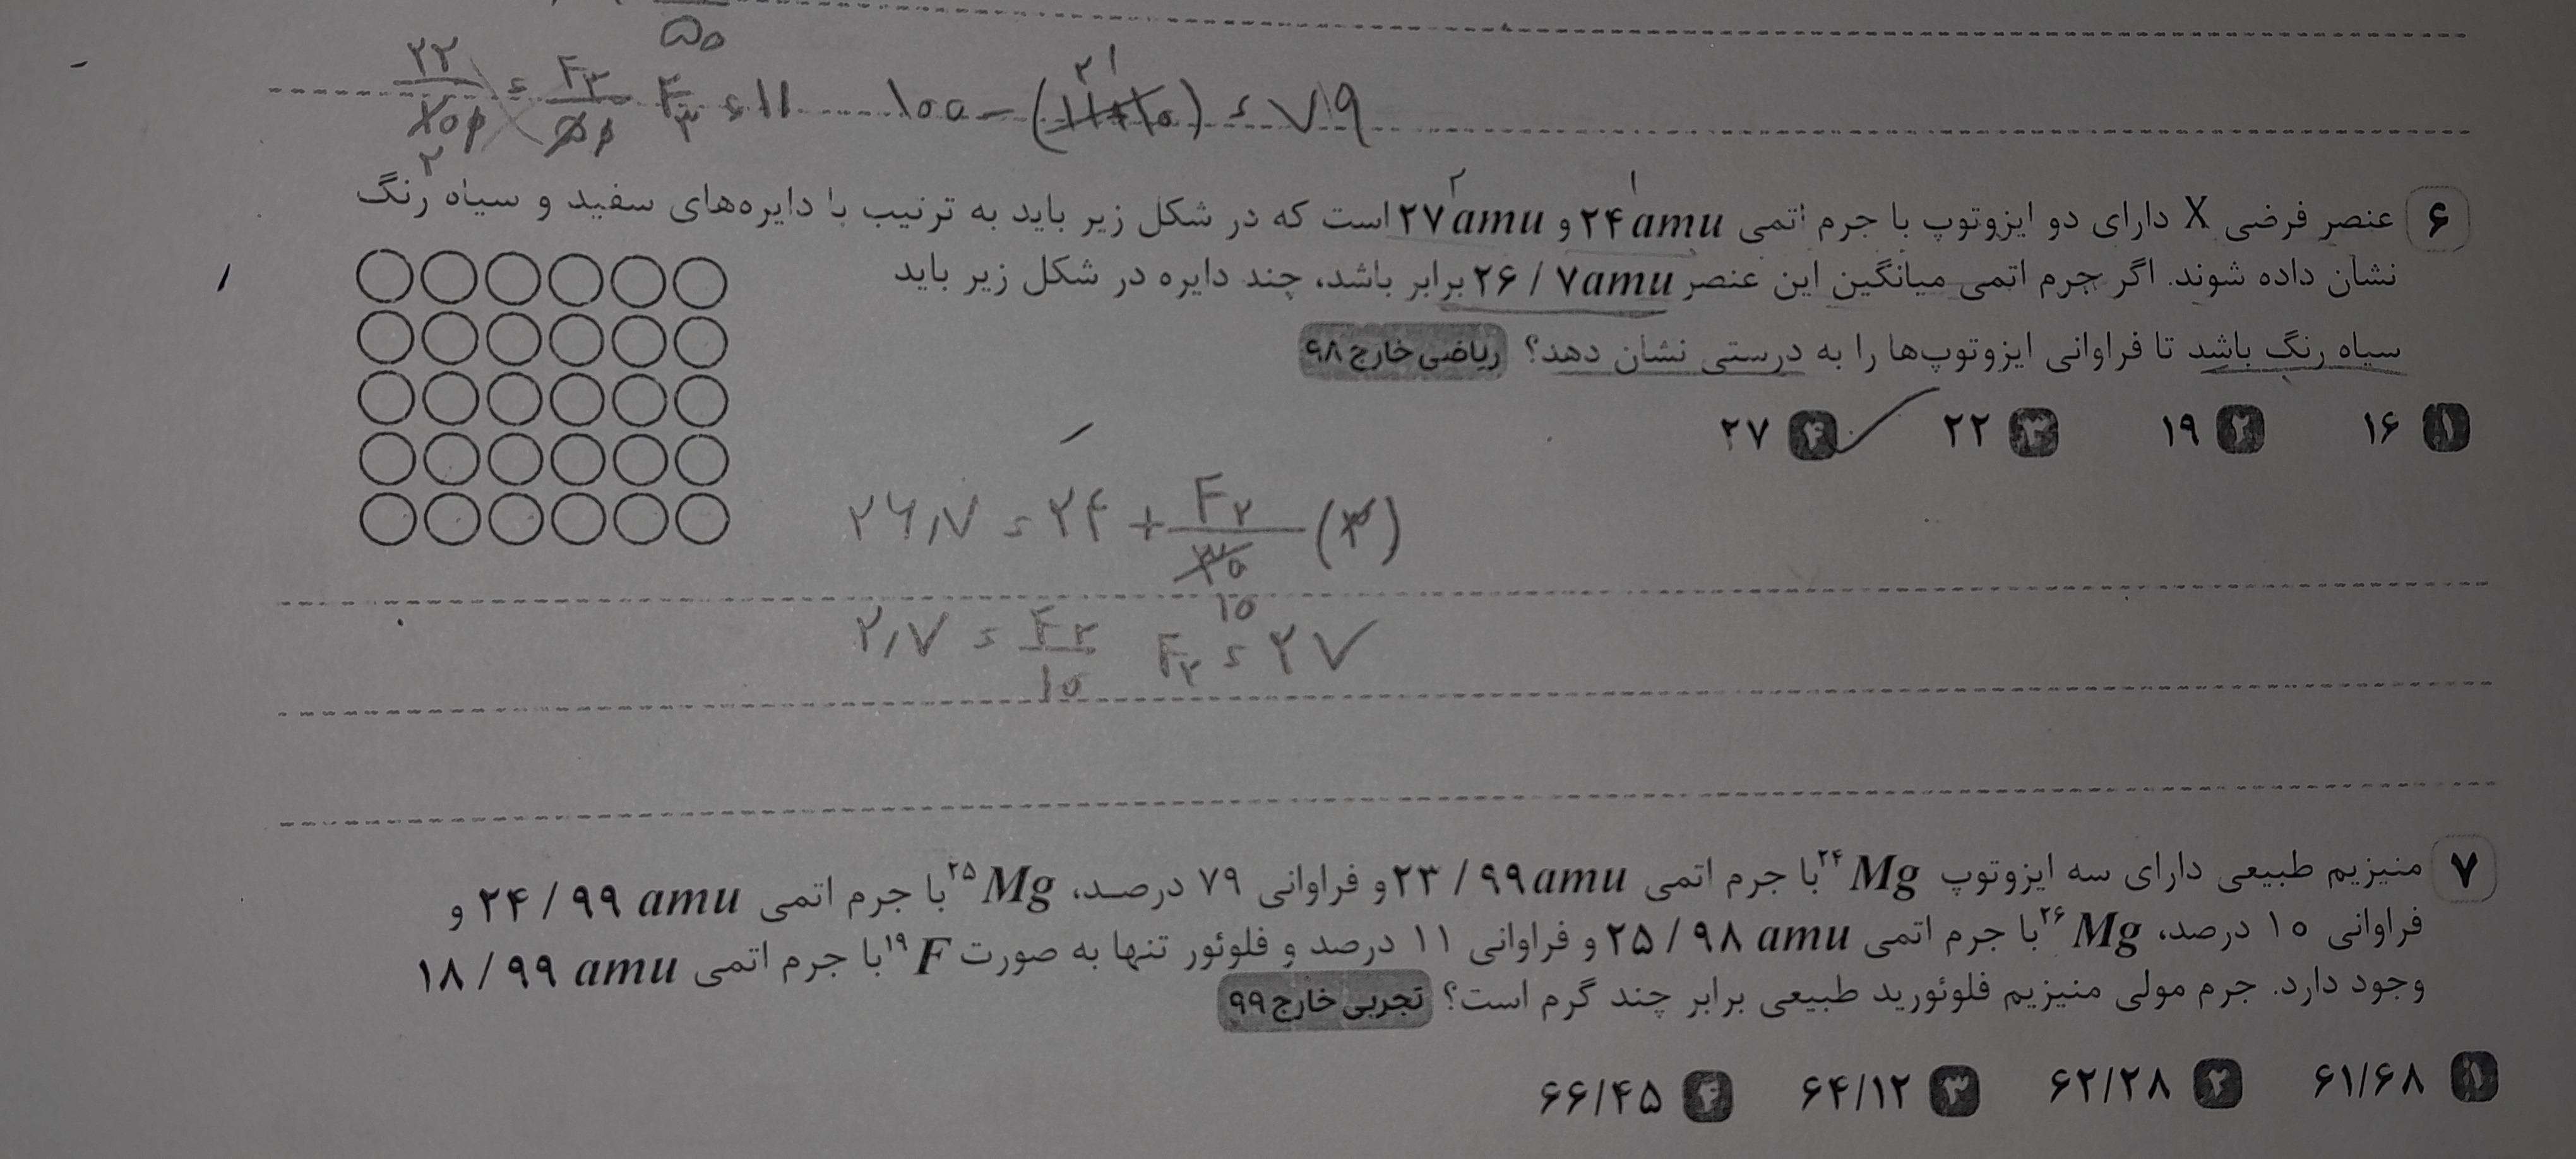 ۵۰
۲۲/۱۰۰ = F۳/۵۰ F۳ = ۱۱ ۱۰۰ - (۱۱+۱۰) = ۷۹
۲ ۲۱
۶ عنصر فرضی X دارای دو ایزوتوپ با جرم اتمی ۲۴amu و ۲۷amu است که در شکل زیر باید به ترتیب با دایره‌های سفید و سیاه رنگ
نشان داده شوند. اگر جرم اتمی میانگین این عنصر ۲۶/۷amu برابر باشد، چند دایره در شکل زیر باید
سیاه رنگ باشد تا فراوانی ایزوتوپ‌ها را به درستی نشان دهد؟ ریاضی خارج ۹۸
۱ ۱۶ ۲ ۱۹ ۳ ۲۲ ۴ ۲۷
۲۶,۷ = ۲۴ + F۲/۳۰ (۳)
۱۰
۲,۷ = F۲/۱۰ F۲ = ۲۷
۷ منیزیم طبیعی دارای سه ایزوتوپ ²⁴Mg با جرم اتمی ۲۳/۹۹amu و فراوانی ۷۹ درصد، ²⁵Mg با جرم اتمی ۲۴/۹۹ amu و
فراوانی ۱۰ درصد، ²⁶Mg با جرم اتمی ۲۵/۹۸ amu و فراوانی ۱۱ درصد و فلوئور تنها به صورت ¹⁹F با جرم اتمی ۱۸/۹۹ amu
وجود دارد. جرم مولی منیزیم فلوئورید طبیعی برابر چند گرم است؟ تجربی خارج ۹۹
۱ ۶۱/۶۸ ۲ ۶۲/۲۸ ۳ ۶۴/۱۲ ۴ ۶۶/۴۵